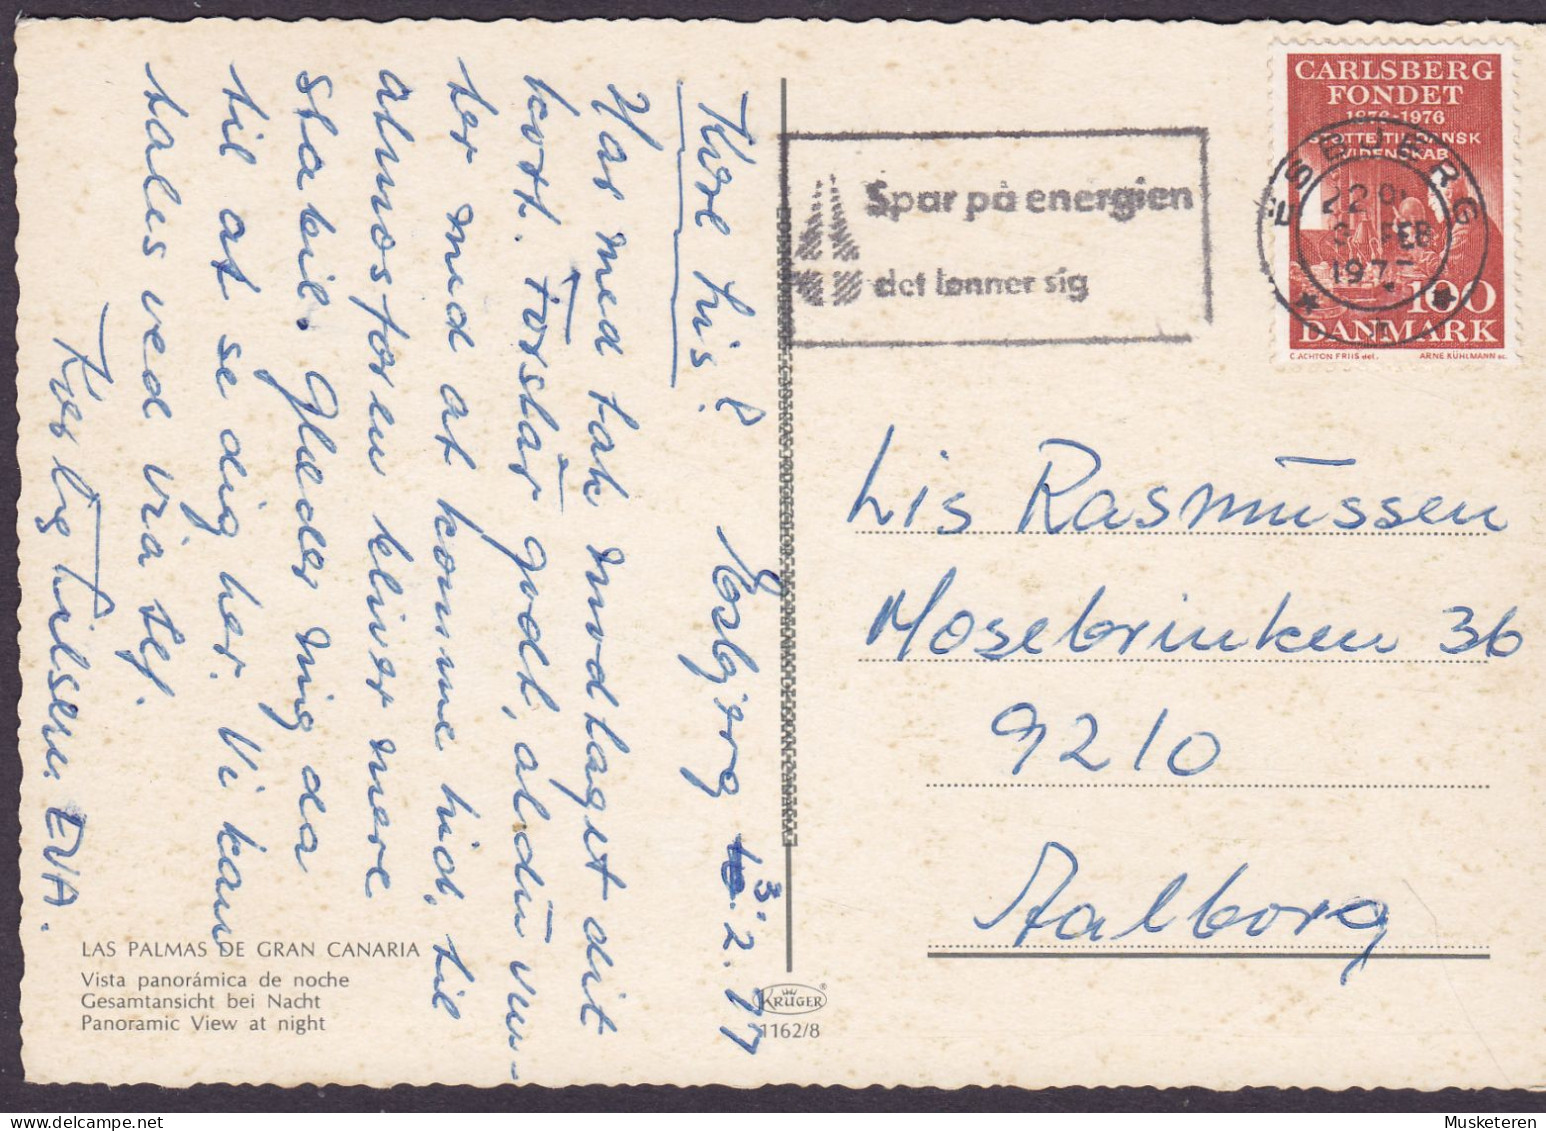 Kære Lis! Esbjerg 3.2.77
Har med tak modtaget dit
kort. Forstår godt, at du ven-
ter med at komme hid, til
atmosfæren bliver mere
stabil. Glæder mig da
til at se dig her. Vi kan
tales ved via tlf.
Kærlig hilsen. EVA.
LAS PALMAS DE GRAN CANARIA
Vista panorámica de noche
Gesamtansicht bei Nacht
Panoramic View at night
KRÜGER
1162/8
Spar på energien
det lønner sig
ESBJERG
FEB
CARLSBERG
FONDET
1876-1976
STØTTE TIL DANSK
VIDENSKAB
100
DANMARK
C. ACHTON FRIIS del. ARNE KÜHLMANN sc.
Lis Rasmussen
Mosebrinken 36
9210
Aalborg
Musketeren